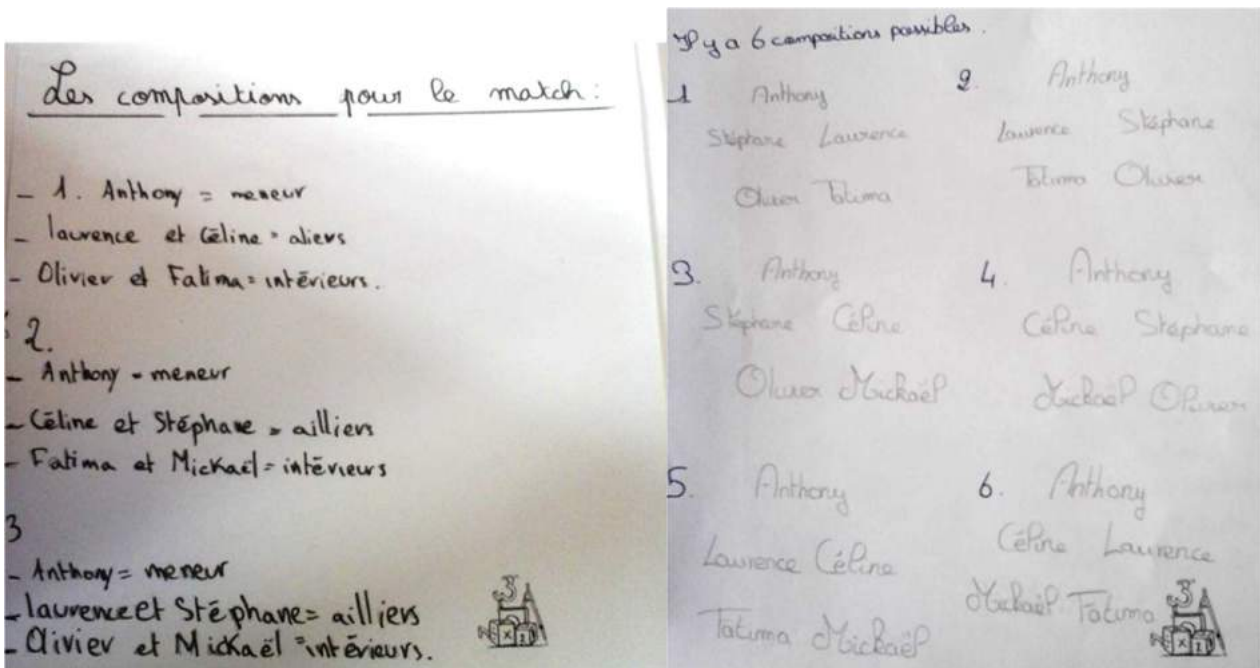 Les compositions pour le match :
- 1. Anthony = meneur
- laurence et Céline = aliers
- Olivier et Fatima = intérieurs.
2.
- Anthony = meneur
- Céline et Stéphane = ailliers
- Fatima et Mickaël = intérieurs
3
- Anthony = meneur
- laurence et Stéphane = ailliers
- Olivier et Mickaël = intérieurs.
Il y a 6 compositions possibles.
1 Anthony
Stéphane Laurence
Olivier Fatima
2. Anthony
Laurence Stéphane
Fatima Olivier
3. Anthony
Stéphane Céline
Olivier Mickaël
4. Anthony
Céline Stéphane
Mickaël Olivier
5. Anthony
Laurence Céline
Fatima Mickaël
6. Anthony
Céline Laurence
Mickaël Fatima